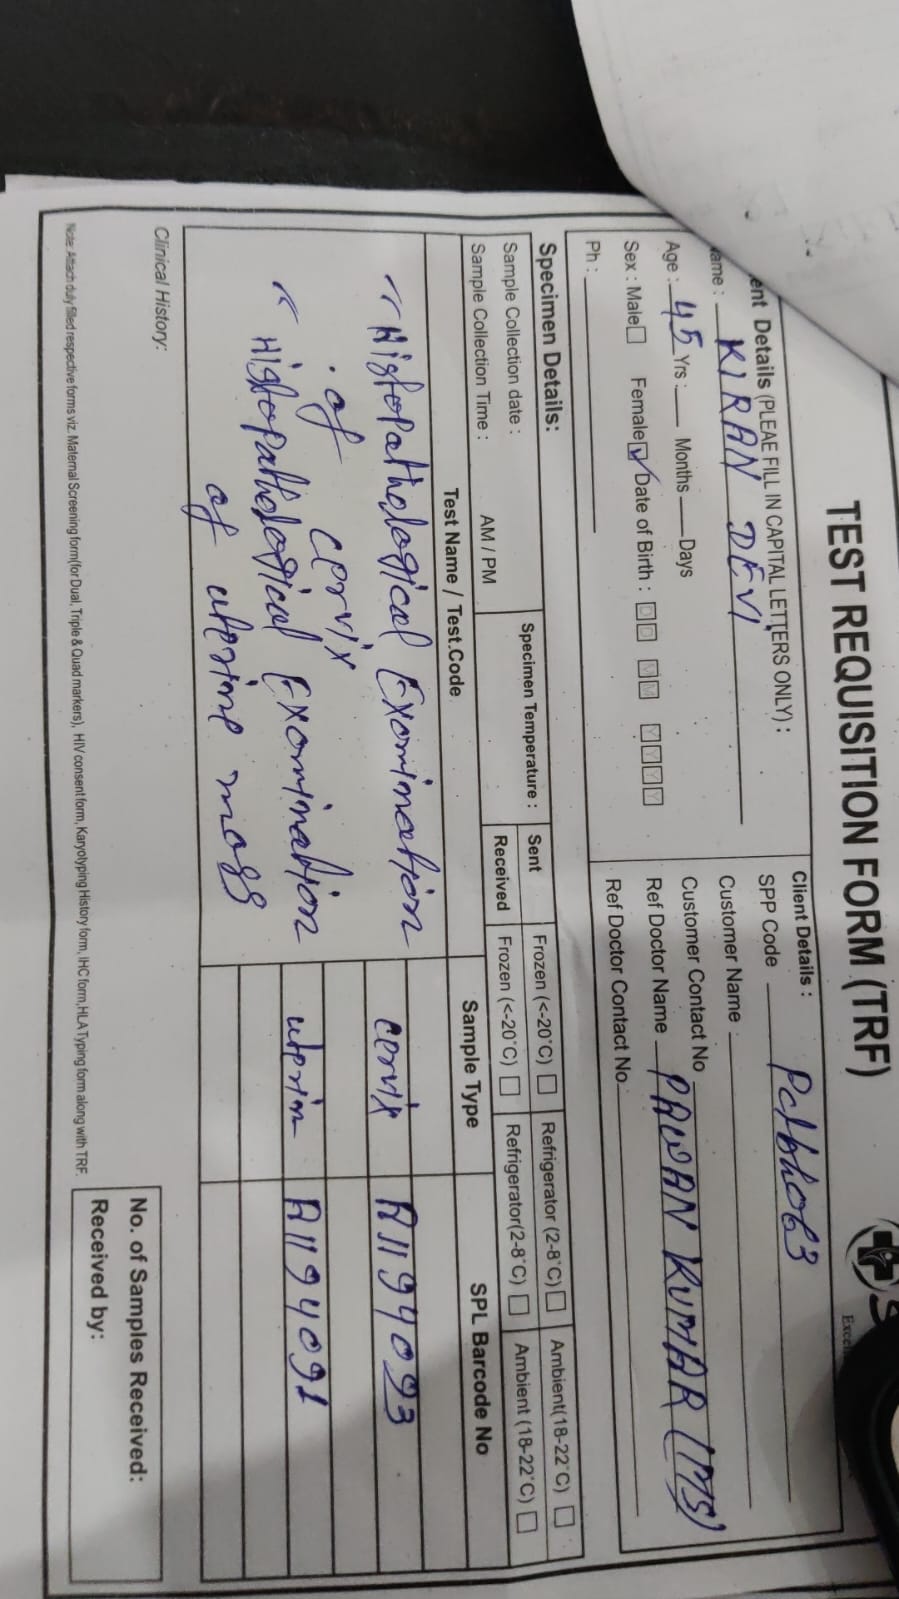 TEST REQUISITION FORM (TRF)
ent Details (PLEAE FILL IN CAPITAL LETTERS ONLY) :
ame : KIRAN DEVI
Age : 45 Yrs : Months Days
Sex : Male Female ✓ Date of Birth : D D M M Y Y Y Y
Ph :
Client Details :
SPP Code
Customer Name
Customer Contact No
Ref Doctor Name PAWAN KUMAR (IMS)
Ref Doctor Contact No
Specimen Details:
Sample Collection date :
Sample Collection Time : AM / PM
Specimen Temperature :
Sent Frozen (<-20°C) Refrigerator (2-8°C) Ambient(18-22°C)
Received Frozen (<-20°C) Refrigerator(2-8°C) Ambient (18-22°C)
Test Name / Test.Code Sample Type SPL Barcode No
Histopathological Examination cervix A1194093
of cervix
Histopathological Examination uterin A1194091
of uterine mass
Clinical History:
No. of Samples Received:
Received by:
Note: Attach duly filled respective forms viz. Maternal Screening form(for Dual, Triple & Quad markers), HIV consent form, Karyolyping History form, IHC form,HLA Typing form along with TRF.